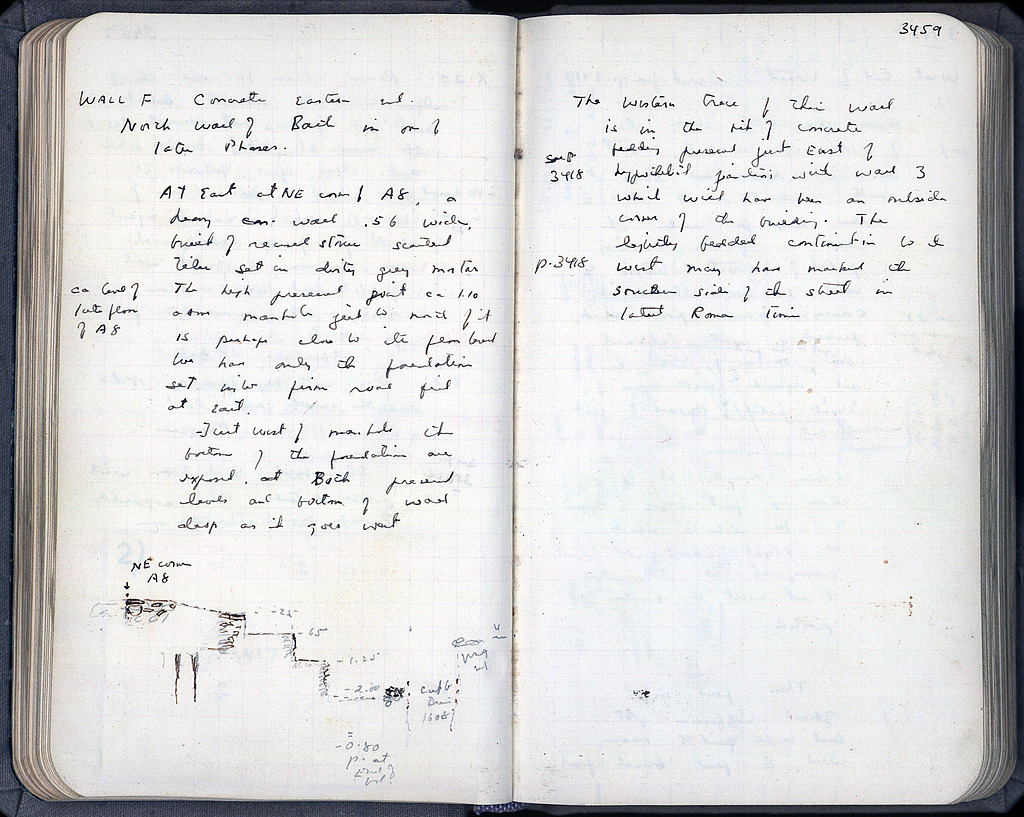 WALL F Concrete Eastern end.
North wall of Bath in one of
later Phases.
At East at NE corner of A8, a
heavy conc. wall .56 wide,
built of reused stone scattered
tiles set in dirty grey mortar
The high present point ca 1.10
manhole just to north of it
is perhaps close to its floor level
We have only the foundation
set into firm road fill
at East.
ca level of
late floor
of A8
- Just west of manhole the
bottom of the foundation are
exposed. at Both present
levels and bottom of wall
drop as it goes west
NE corner
A8
-.65
-1.25
-2.00
Cut by
Drain
1608
=
-0.80
p. at
3459
The western trace of this wall
is in the bit of concrete
bedding present just East of
see p.
3418
hypothetical junction with wall 3
which would have been an outside
corner of the building. The
lightly bedded continuation to the
p. 3418
west may have marked the
southern side of the street in
latest Roman Times